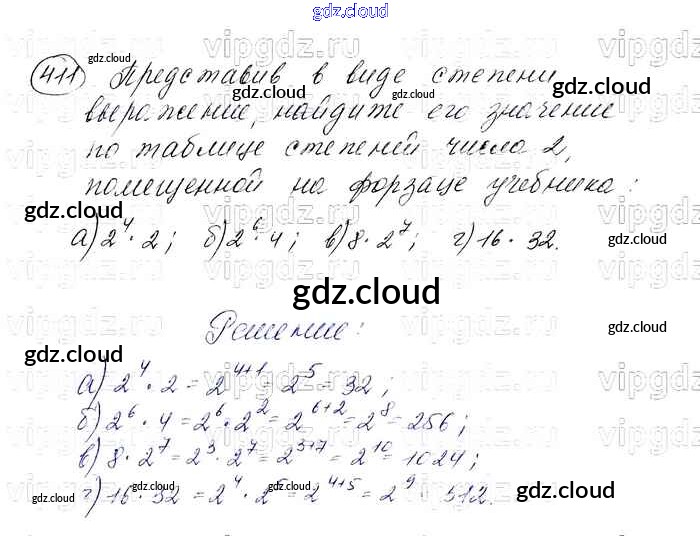 gdz.cloud
411 Представив в виде степени
выражение, найдите его значение
по таблице степеней числа 2,
помещенной на форзаце учебника:
а) 2⁴ · 2; б) 2⁶ · 4; в) 8 · 2⁷; г) 16 · 32.
gdz.cloud
Решение:
а) 2⁴ · 2 = 2⁴⁺¹ = 2⁵ = 32;
б) 2⁶ · 4 = 2⁶ · 2² = 2⁶⁺² = 2⁸ = 256;
в) 8 · 2⁷ = 2³ · 2⁷ = 2³⁺⁷ = 2¹⁰ = 1024;
г) 16 · 32 = 2⁴ · 2⁵ = 2⁴⁺⁵ = 2⁹ = 512.